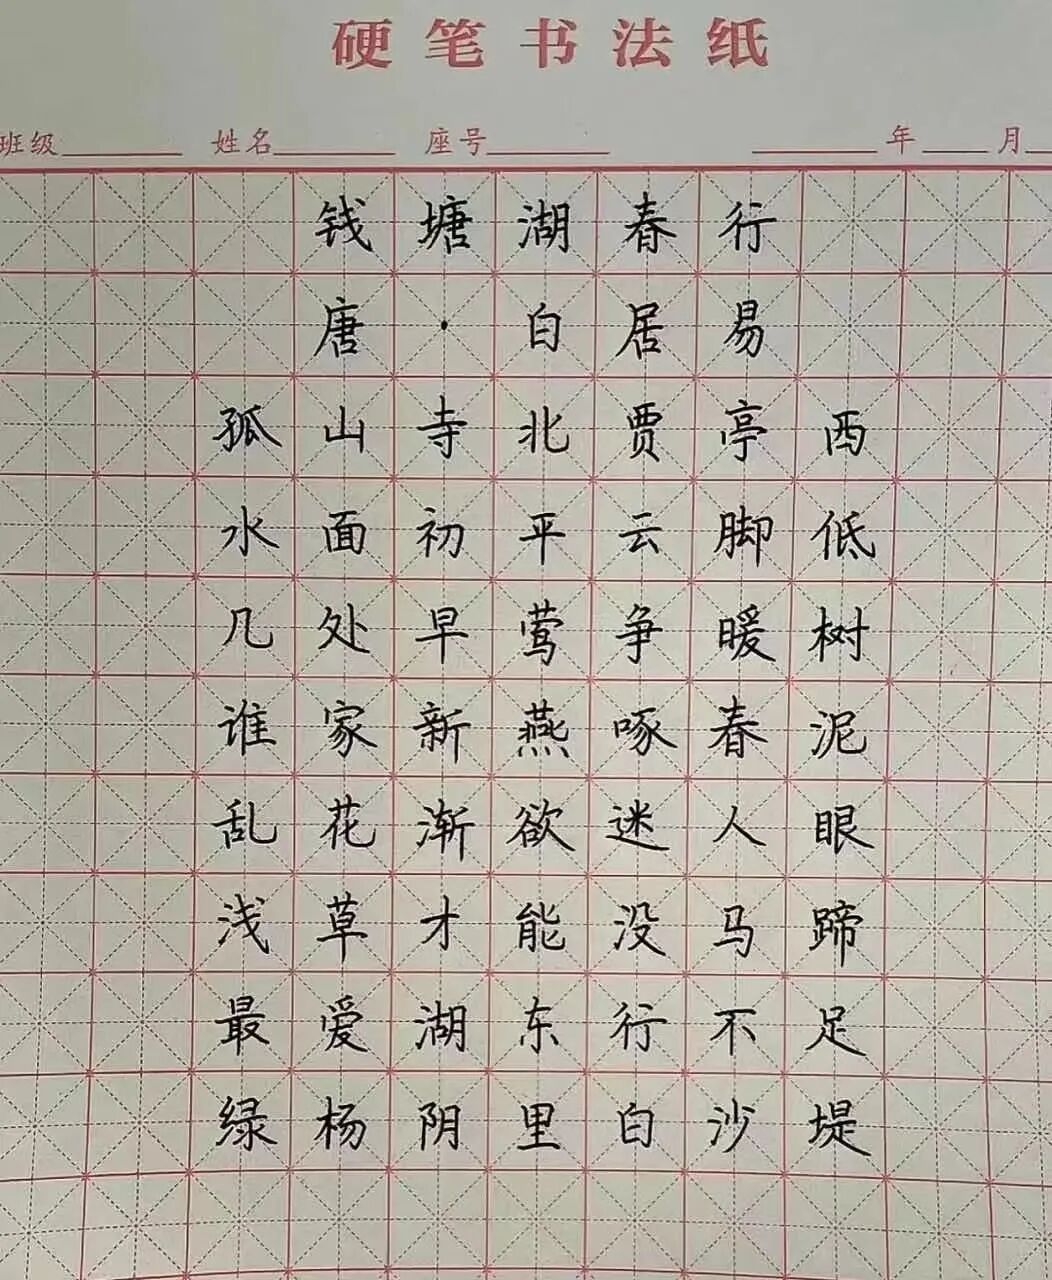 硬笔书法纸
班级 姓名 座号 年 月
钱塘湖春行
唐·白居易
孤山寺北贾亭西
水面初平云脚低
几处早莺争暖树
谁家新燕啄春泥
乱花渐欲迷人眼
浅草才能没马蹄
最爱湖东行不足
绿杨阴里白沙堤